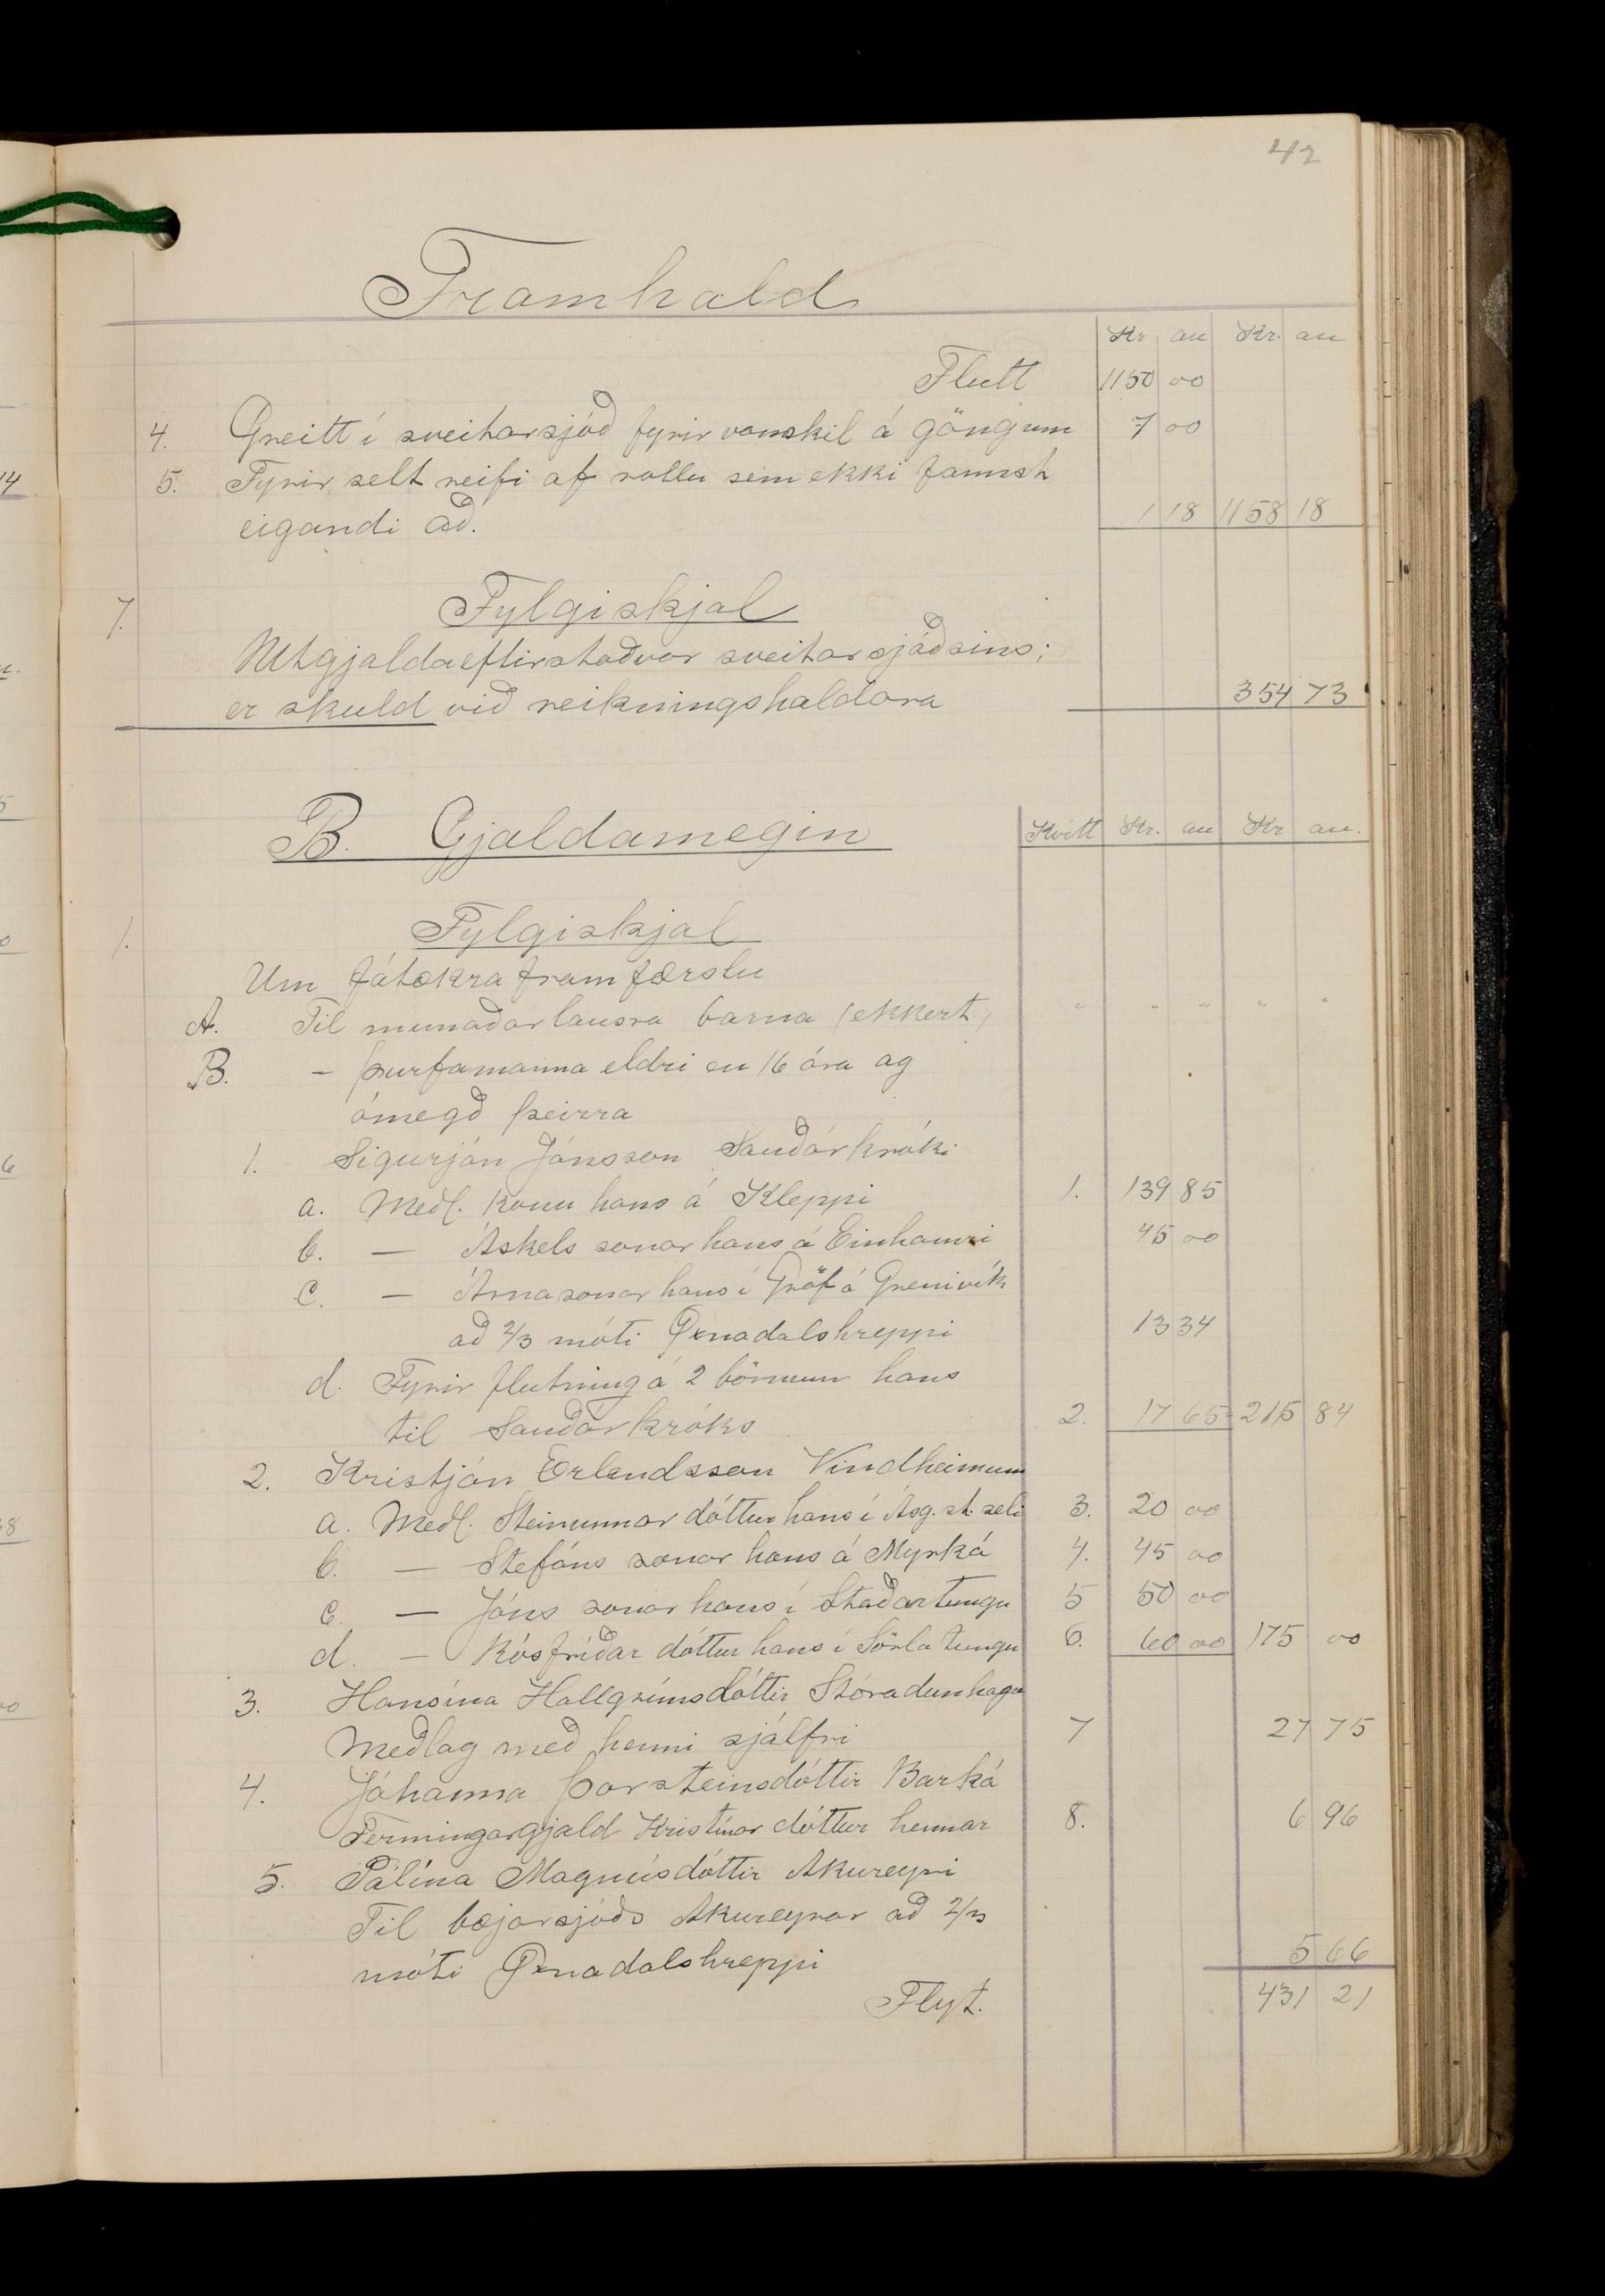 42
Framhald
Kr au Kr. au
Flutt 1150 00
4. Greitt í sveitarsjóð fyrir vanskil á göngum 7 00
5. Fyrir selt reifi af rollu sem ekki fannst
eigandi að. 1 18 1158 18
7. Fylgiskjal
Utgjaldaeftirstaðvar sveitarsjóðsins;
er skuld við reikningshaldara 354 73
B. Gjaldamegin Kvitt Kr. au Kr au.
1. Fylgiskjal
Um fátækra framfærslu
A. Til munaðarlausra barna (ekkert) " " " " "
B. – þurfamanna eldri en 16 ára og
ómegð þeirra
1. Sigurjón Jónsson Sauðárkróki
a. Meðl. konu hans á Kleppi 1. 139 85
b. — Áskels sonar hans á Einhamri 45 00
c. — Árna sonar hans í Gröf á Grenivík
að 2/3 móti Öxnadalshreppi 13 34
d. Fyrir flutning á 2 börnum hans
til Sauðárkróks 2. 17 65 = 215 84
2. Kristján Erlendsson Vindheimum
a. Meðl. Steinunnar dóttur hans í Ásg. st. seli 3. 20 00
b. — Stefáns sonar hans á Myrká 4. 45 00
c. — Jóns sonar hans í Staðartungu 5 50 00
d. — Rósfríðar dóttur hans í Sörlatungu 6. 60 00 175 00
3. Hansína Hallgrímsdóttir Stóradunhaga
Meðlag með henni sjálfri 7 27 75
4. Jóhanna Þorsteinsdóttir Barká
Fermingargjald Kristínar dóttur hennar 8. 6 96
5. Pálína Magnúsdóttir Akureyri
Til bæjarsjóðs Akureyrar að 2/3
móti Öxnadalshreppi 5 66
Flyt. 431 21